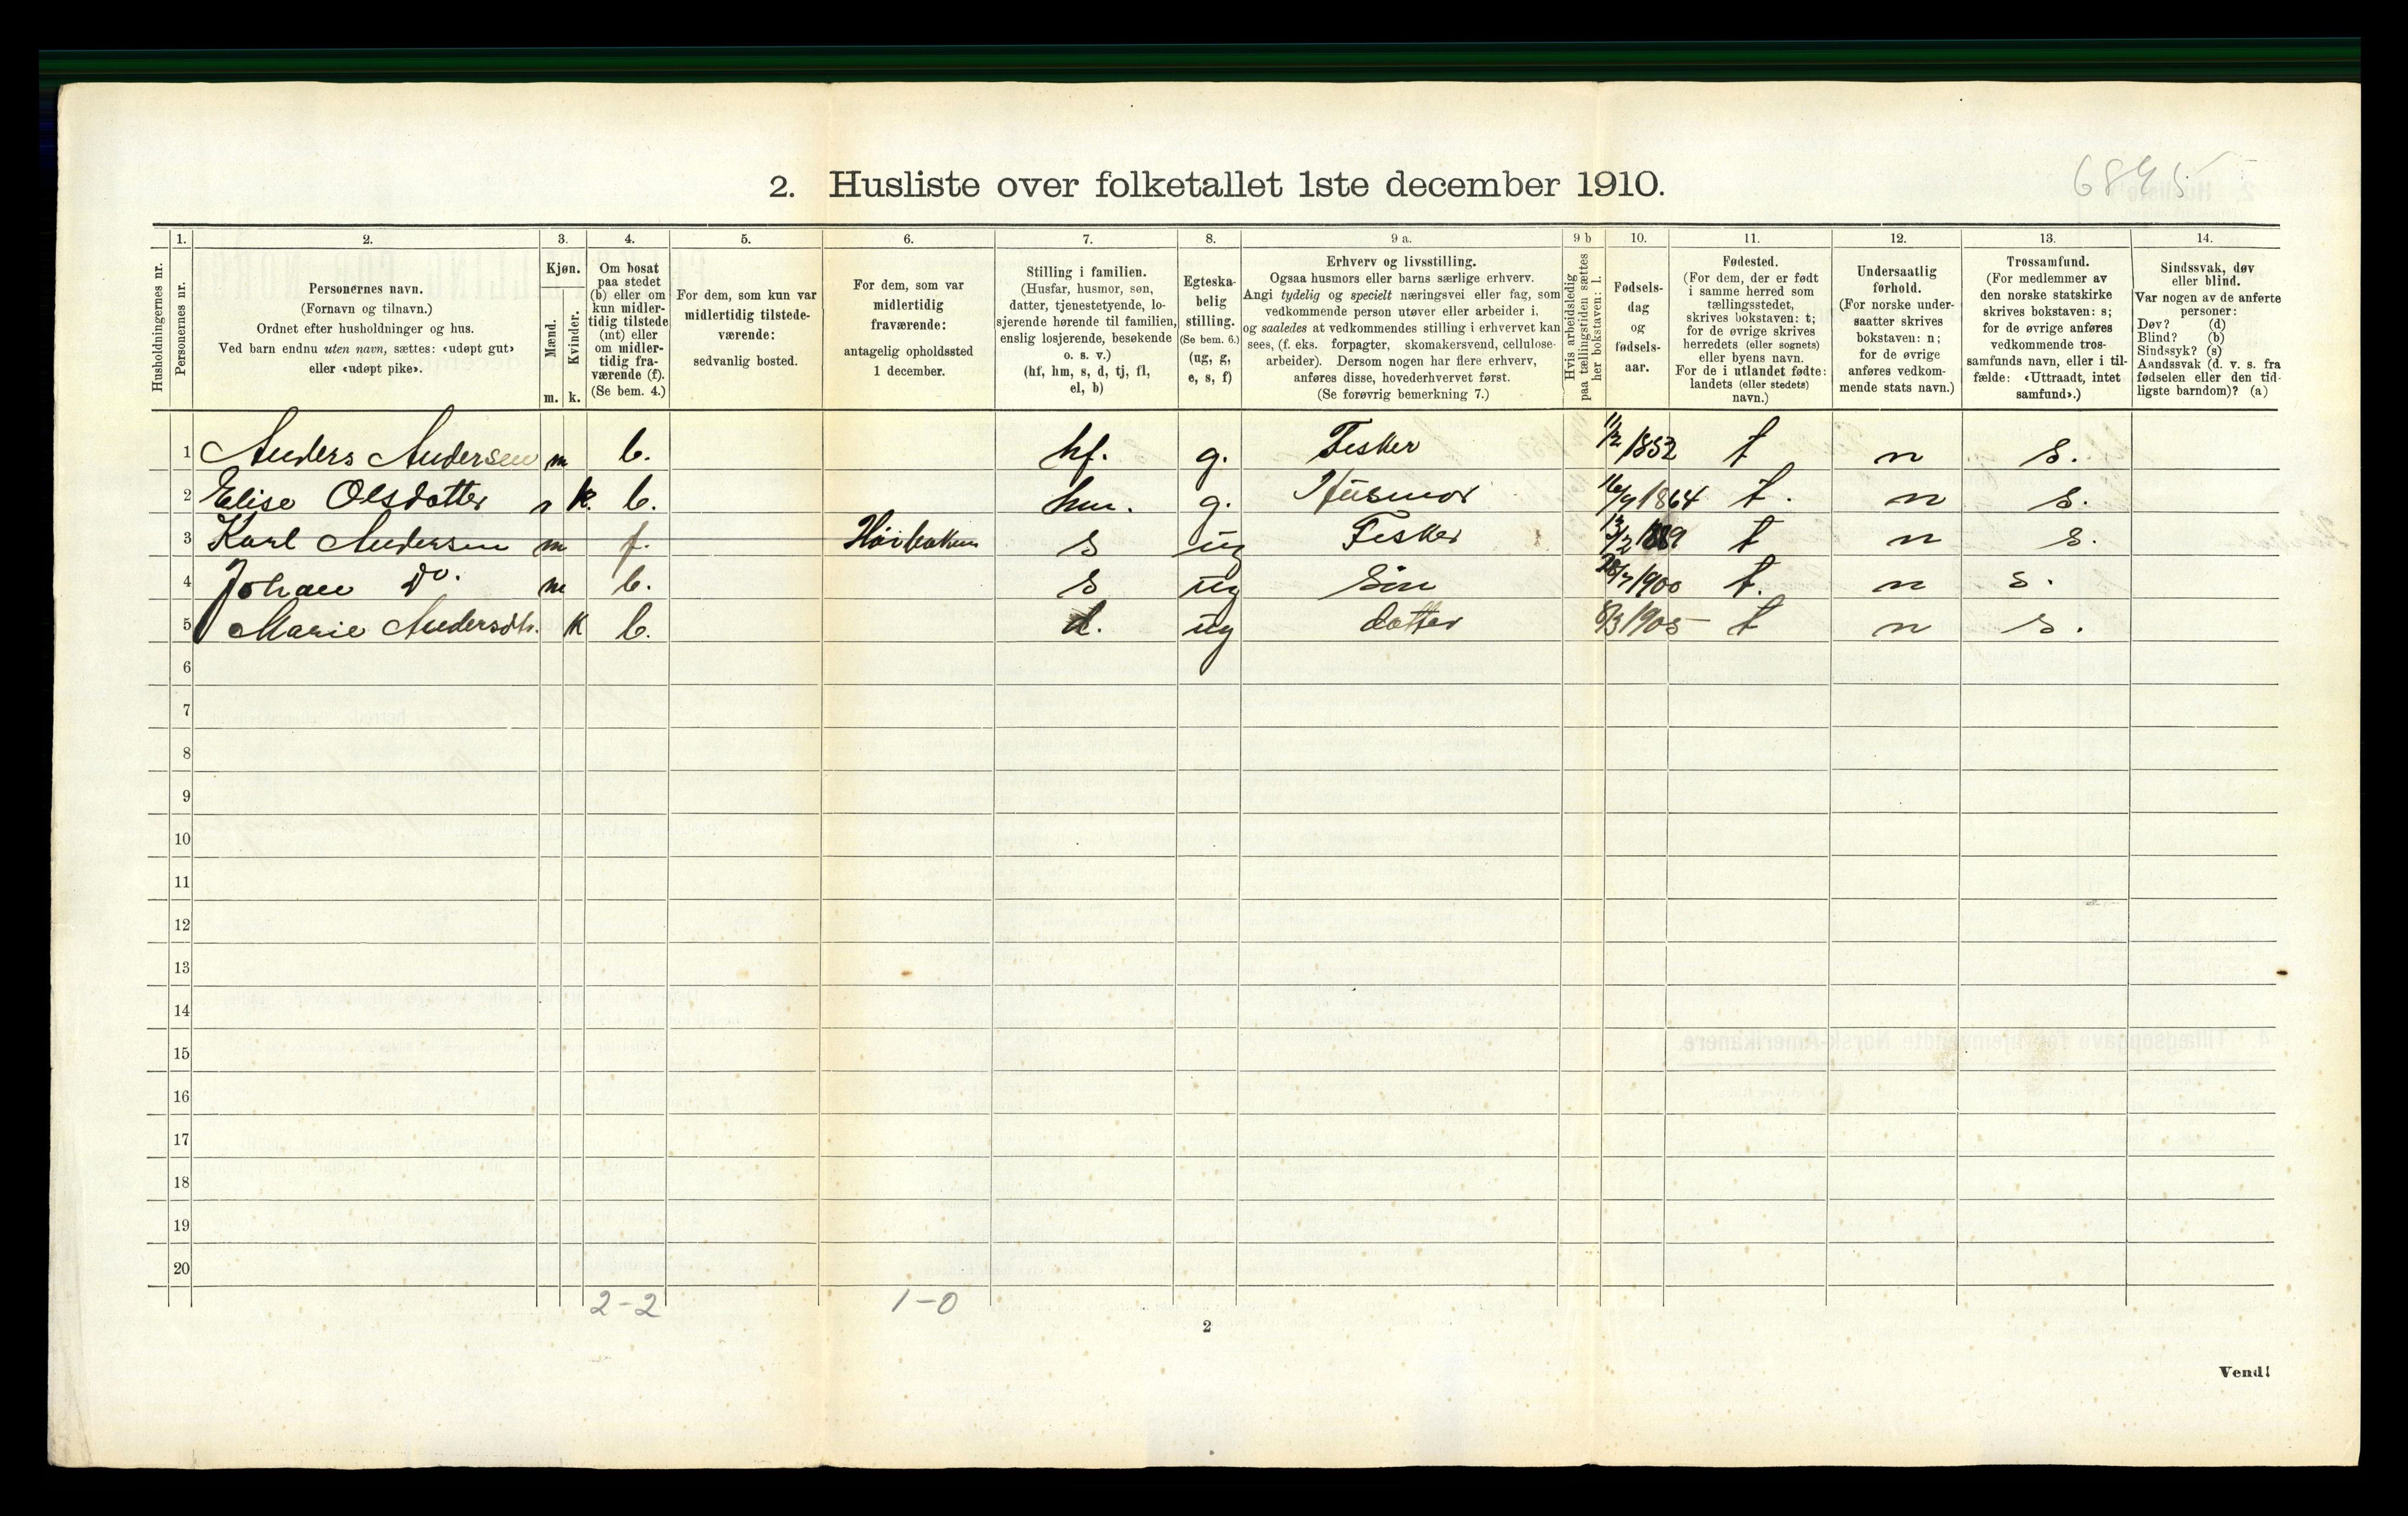 6895
2. Husliste over folketallet 1ste december 1910.
Husholdningernes nr.
1. Personernes nr.
2. Personernes navn.
(Fornavn og tilnavn.)
Ordnet efter husholdninger og hus.
Ved barn endnu uten navn, sættes: «udøpt gut»
eller «udøpt pike».
3. Kjøn.
Mænd. m.
Kvinder. k.
4. Om bosat
paa stedet
(b) eller om
kun midler-
tidig tilstede
(mt) eller
om midler-
tidig fra-
værende (f).
(Se bem. 4.)
5. For dem, som kun var
midlertidig tilstede-
værende:
sedvanlig bosted.
6. For dem, som var
midlertidig
fraværende:
antagelig opholdssted
1 december.
7. Stilling i familien.
(Husfar, husmor, søn,
datter, tjenestetyende, lo-
sjerende hørende til familien,
enslig losjerende, besøkende
o. s. v.)
(hf, hm, s, d, tj, fl,
el, b)
8. Egteska-
belig
stilling.
(Se bem. 6.)
(ug, g,
e, s, f)
9 a. Erhverv og livsstilling.
Ogsaa husmors eller barns særlige erhverv.
Angi tydelig og specielt næringsvei eller fag, som
vedkommende person utøver eller arbeider i,
og saaledes at vedkommendes stilling i erhvervet kan
sees, (f. eks. forpagter, skomakersvend, cellulose-
arbeider). Dersom nogen har flere erhverv,
anføres disse, hovederhvervet først.
(Se forøvrig bemerkning 7.)
9 b Hvis arbeidsledig
paa tællingstiden sættes
her bokstaven: l.
10. Fødsels-
dag
og
fødsels-
aar.
11. Fødested.
(For dem, der er født
i samme herred som
tællingsstedet,
skrives bokstaven: t;
for de øvrige skrives
herredets (eller sognets)
eller byens navn.
For de i utlandet fødte:
landets (eller stedets)
navn.)
12. Undersaatlig
forhold.
(For norske under-
saatter skrives
bokstaven: n;
for de øvrige
anføres vedkom-
mende stats navn.)
13. Trossamfund.
(For medlemmer av
den norske statskirke
skrives bokstaven: s;
for de øvrige anføres
vedkommende tros-
samfunds navn, eller i til-
fælde: «Uttraadt, intet
samfund».)
14. Sindssvak, døv
eller blind.
Var nogen av de anførte
personer:
Døv? (d)
Blind? (b)
Sindssyk? (s)
Aandssvak (d. v. s. fra
fødselen eller den tid-
ligste barndom)? (a)
1 Anders Andersen m b. hf. g. Fisker 11/2 1852 t n s.
2 Elise Olsdatter k. b. hm. g. Husmor 16/9 1864 t. n s.
3 Karl Andersen m f. s ug Fisker 13/2 1889 t n s.
4 Johan Do. m b. s ug Sön 28/7 1900 t. n s.
5 Marie Andersdtr. k b. d. ug datter 8/3 1905 t n s.
6
7
8
9
10
11
12
13
14
15
16
17
18
19
20
2-2 1-0
2
Vend!